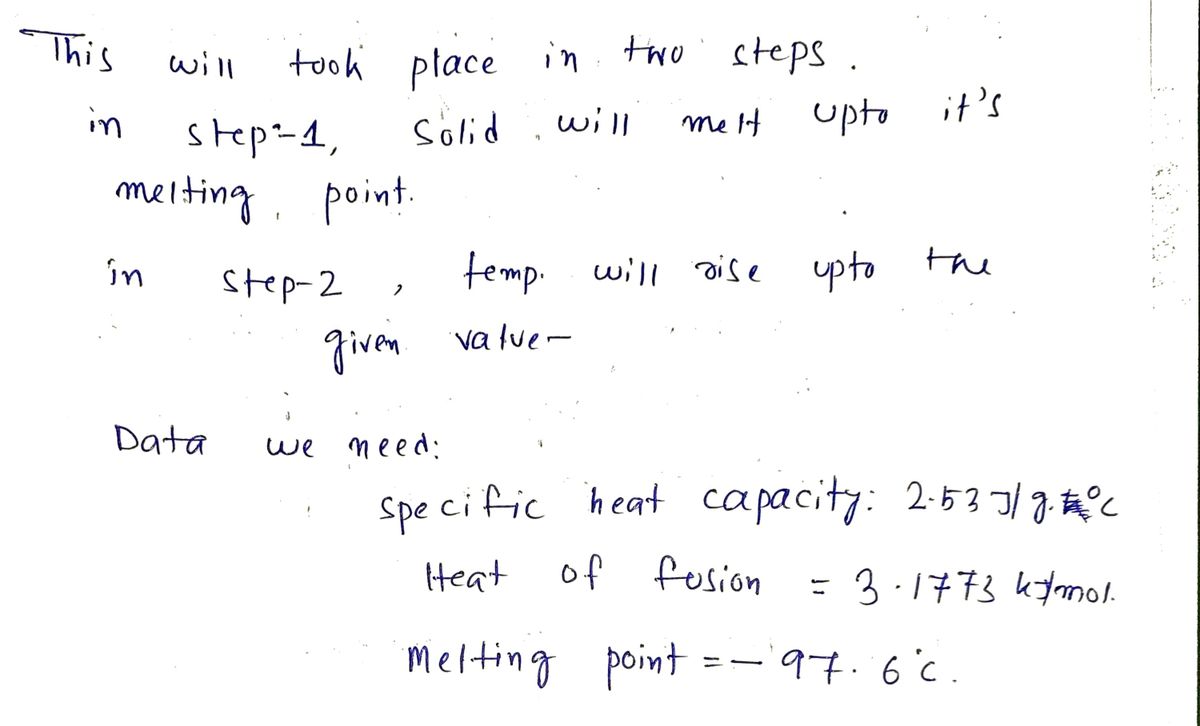 This will took place in two steps.
in step-1, Solid will melt upto it's
melting point.
in step-2, temp. will rise upto the
given value-
Data we need:
specific heat capacity: 2.53 J/g.°C
Heat of fusion = 3.1773 kJ/mol.
Melting point = -97.6°C.